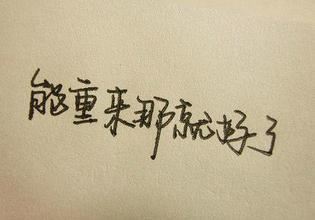 能重来那就好了